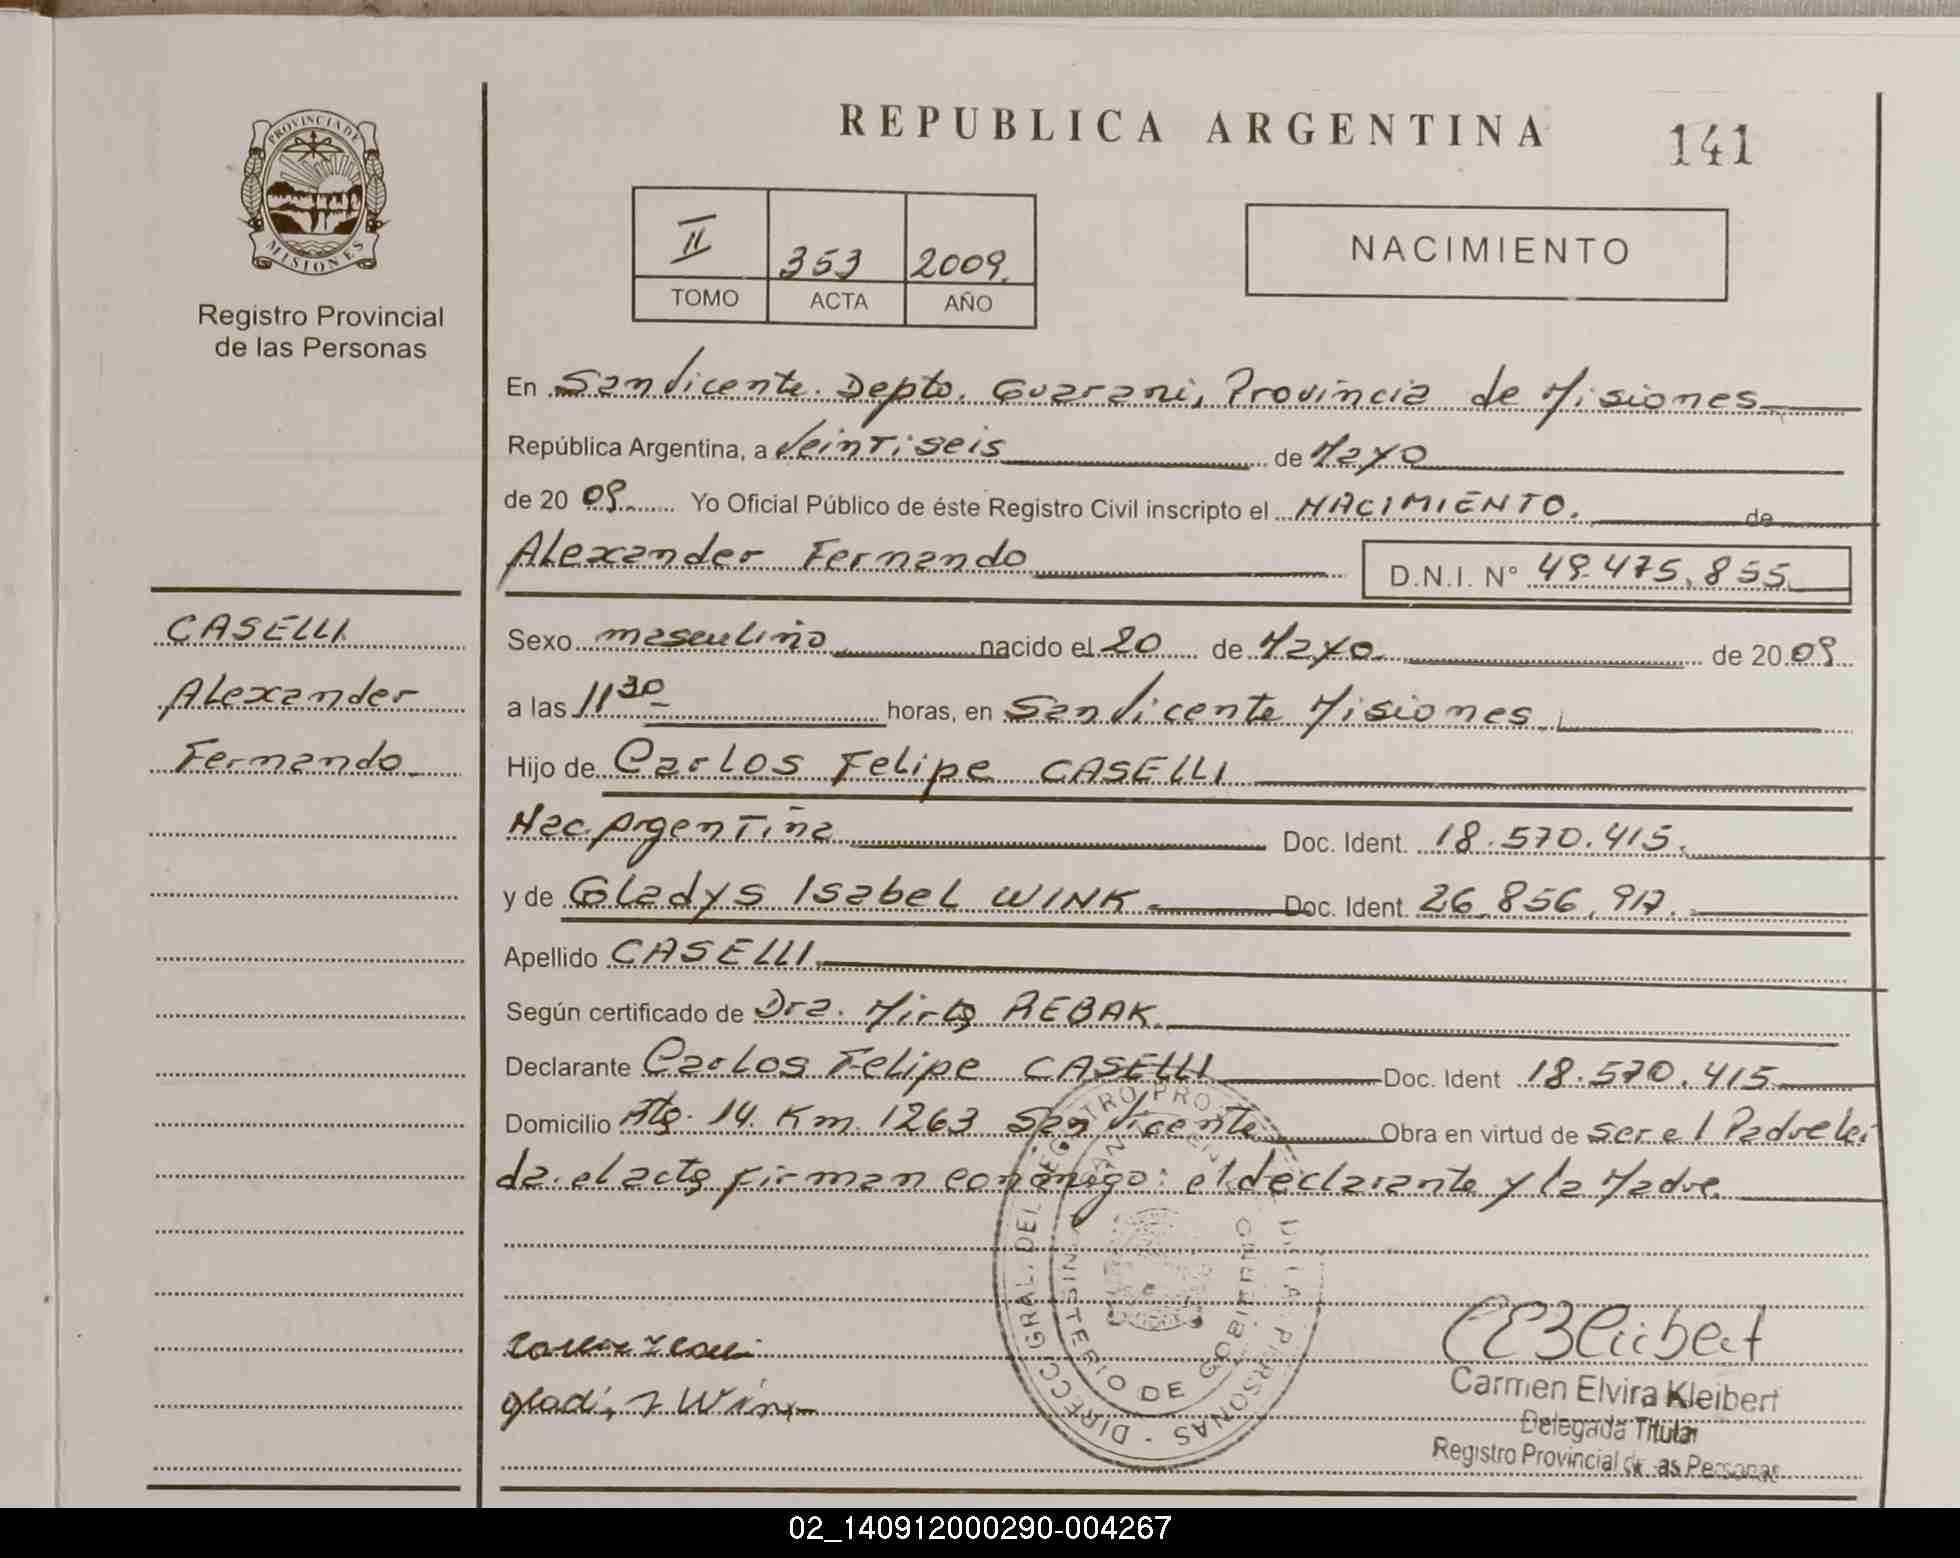 PROVINCIA DE
MISIONES
Registro Provincial
de las Personas
CASELLI
Alexander
Fernando
REPUBLICA ARGENTINA
141
II 353 2009.
TOMO ACTA AÑO
NACIMIENTO
En San Vicente. Depto. Guarani, Provincia de Misiones
República Argentina, a Veintiseis de Mayo
de 20 09 Yo Oficial Público de éste Registro Civil inscripto el NACIMIENTO. de
Alexander Fernando D.N.I. N° 49.475.855
Sexo masculino nacido el 20 de Mayo de 20 09
a las 11 30 horas, en San Vicente Misiones
Hijo de Carlos Felipe CASELLI
Nac. Argentina Doc. Ident. 18.570.415.
y de Gladys Isabel WINK. Doc. Ident. 26.856.917.
Apellido CASELLI
Según certificado de Dra. Mirta REBAK.
Declarante Carlos Felipe CASELLI Doc. Ident 18.570.415
Domicilio Rta. 14. Km. 1263 San Vicente Obra en virtud de ser el Padre lei
da. el acta firman conmigo: el declarante y la Madre.
DIRECC. GRAL. DEL REGISTRO PROV. PERSONAS
MINISTERIO DE GOBIERNO
Wink
Carmen Elvira Kleibert
Delegada Titular
Registro Provincial de las Personas
02_140912000290-004267